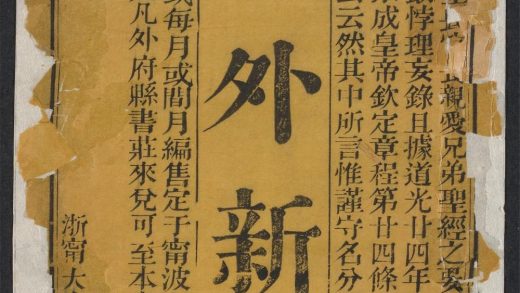 親愛兄弟聖經之要
悖理妄錄且據道光廿四年
成皇帝欽定章程第廿四條
云然其中所言惟謹守名分
外新
或每月或間月編售定于甯波
凡外府縣書莊來兌可至本
浙甯大